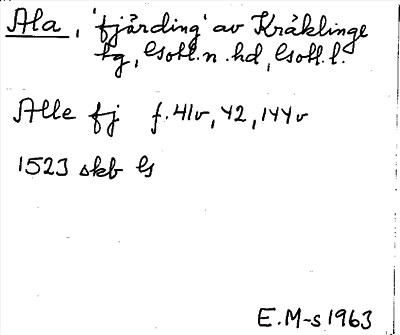 Ala, 'fjärding' av Kräklinge
tg, Gotl. n. hd, Gotl. l.
Alle fj f. 41v, 42, 144v
1523 skb G
E. M-s 1963